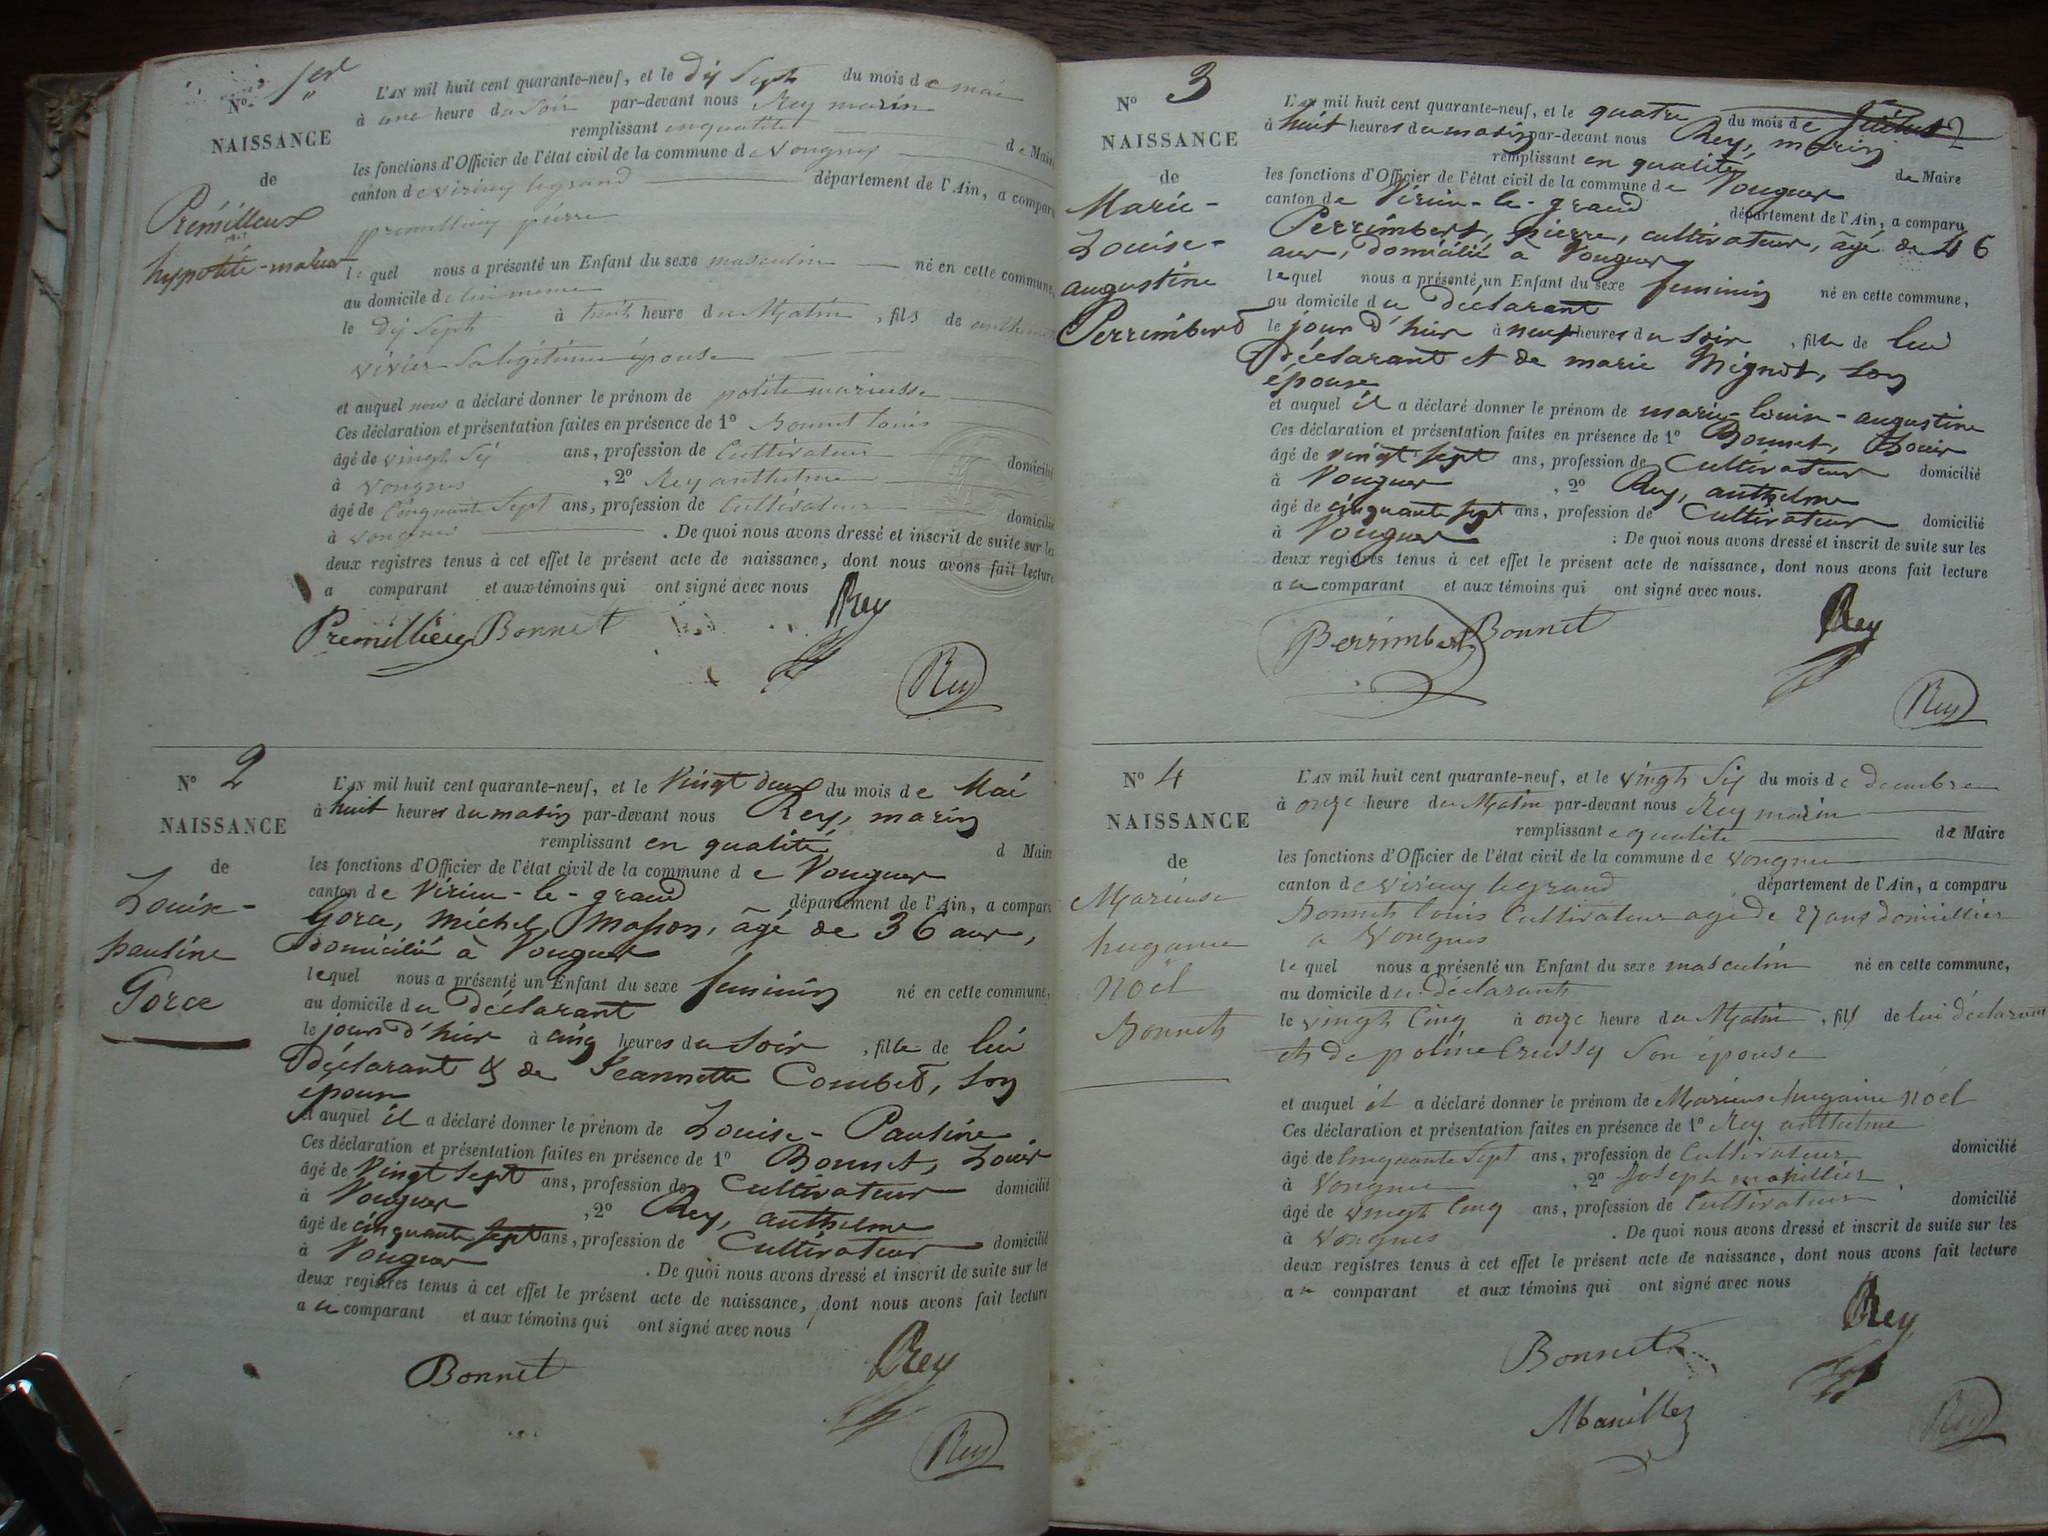 N° 1er
NAISSANCE
de
Prémilleux
hypolite-marius
L'AN mil huit cent quarante-neuf, et le dix Sept du mois de mai
à une heure du Soir par-devant nous Rey marin
remplissant en qualité de Maire
les fonctions d'Officier de l'état civil de la commune de Vongnes
canton de virieu legrand département de l'Ain, a comparu
premillieux pierre
lequel nous a présenté un Enfant du sexe masculin né en cette commune,
au domicile de lui meme
le dix Sept à huit heure du Matin, fils de anthelmette
vivier Sa légitime épouse
et auquel nous a déclaré donner le prénom de polite mariusse
Ces déclaration et présentation faites en présence de 1° Bonnet louis
âgé de vingh Six ans, profession de Cultivateur domicilié
à Vongnes, 2° Rey anthelme
âgé de Cinquante Sept ans, profession de Cultivateur domicilié
à Vongnes. De quoi nous avons dressé et inscrit de suite sur les
deux registres tenus à cet effet le présent acte de naissance, dont nous avons fait lecture
a comparant et aux témoins qui ont signé avec nous
Premillieux Bonnet Rey
Rey
N° 2
NAISSANCE
de
Louise-
pauline
Gorce
L'AN mil huit cent quarante-neuf, et le Vingt deux du mois de Mai
à huit heures du matin par-devant nous Rey, marin
remplissant en qualité d Maire
les fonctions d'Officier de l'état civil de la commune de Vongnes
canton de Virieu-le-grand département de l'Ain, a comparu
Gorce, Michel, Masson, âgé de 36 ans,
domicilié à Vongnes
lequel nous a présenté un Enfant du sexe feminin né en cette commune,
au domicile du déclarant
le jour d'hier à cinq heures du Soir, fille de lui
déclarant & de Jeannette Combet, Son
épouse
et auquel il a déclaré donner le prénom de Louise-Pauline
Ces déclaration et présentation faites en présence de 1° Bonnet, Louis
âgé de Vingt Sept ans, profession de Cultivateur domicilié
à Vongnes, 2° Rey, anthelme
âgé de cinquante Sept ans, profession de Cultivateur domicilié
à Vongnes. De quoi nous avons dressé et inscrit de suite sur les
deux registres tenus à cet effet le présent acte de naissance, dont nous avons fait lecture
a u comparant et aux témoins qui ont signé avec nous
Bonnet Rey
Rey
N° 3
NAISSANCE
de
Marie-
Louise-
augustine
Perrimbert
L'AN mil huit cent quarante-neuf, et le quatre du mois de Juillet 2
à huit heures du matin par-devant nous Rey, marin
remplissant en qualité de Maire
les fonctions d'Officier de l'état civil de la commune de Vongnes
canton de Virieu-le-grand département de l'Ain, a comparu
Perrimbert, pierre, cultivateur, âgé de 46
ans, domicilié à Vongnes
lequel nous a présenté un Enfant du sexe feminin né en cette commune,
au domicile du déclarant
le jour d'hier à neuf heures du Soir, fille de lui
déclarant et de marie Mignot, Son
épouse
et auquel il a déclaré donner le prénom de marie-louise-augustine
Ces déclaration et présentation faites en présence de 1° Bonnet, Louis
âgé de vingt sept ans, profession de Cultivateur domicilié
à Vongnes, 2° Rey, anthelme
âgé de cinquante sept ans, profession de Cultivateur domicilié
à Vongnes. De quoi nous avons dressé et inscrit de suite sur les
deux registres tenus à cet effet le présent acte de naissance, dont nous avons fait lecture
a u comparant et aux témoins qui ont signé avec nous.
Perrimbert Bonnet Rey
Rey
N° 4
NAISSANCE
de
Mariuse
hugaine
noël
Bonneth
L'AN mil huit cent quarante-neuf, et le vingh Six du mois de decembre
à onze heure du Matin par-devant nous Rey marin
remplissant equalite de Maire
les fonctions d'Officier de l'état civil de la commune de Vongnes
canton de virieux legrand département de l'Ain, a comparu
Bonneth louis Cultivateur age de 27 ans domicillier
a Vongnes
lequel nous a présenté un Enfant du sexe masculin né en cette commune,
au domicile du declaranth
le vingh Cinq à onze heure du Matin, fils de lui déclarant
eh de poline Crussy Son épouse
et auquel il a déclaré donner le prénom de Mariuse hugaine noël
Ces déclaration et présentation faites en présence de 1° Rey anthelme
âgé de Cinquante Sept ans, profession de Cultivateur domicilié
à Vongnes, 2° Joseph manillier
âgé de vingh Cinq ans, profession de Cultivateur domicilié
à Vongnes. De quoi nous avons dressé et inscrit de suite sur les
deux registres tenus à cet effet le présent acte de naissance, dont nous avons fait lecture
a u comparant et aux témoins qui ont signé avec nous
Bonnet Rey
Manillez
Rey